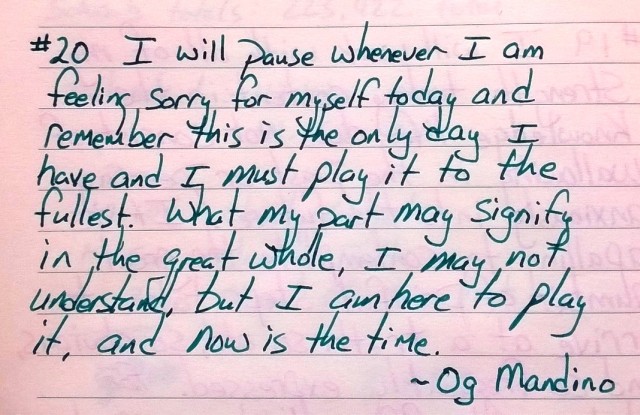 #20 I will pause whenever I am
feeling sorry for myself today and
remember this is the only day I
have and I must play it to the
fullest. What my part may signify
in the great whole, I may not
understand, but I am here to play
it, and now is the time.
~Og Mandino